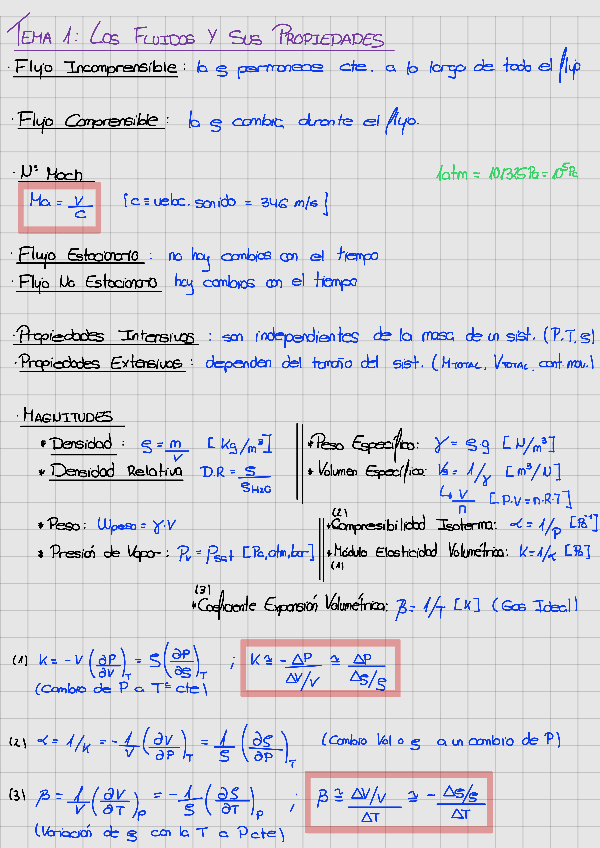 TEMA 1: LOS FLUIDOS Y SUS PROPIEDADES
· Flujo Incomprensible: la ρ permanece cte. a lo largo de todo el flujo
· Flujo Comprensible: la ρ cambia durante el flujo.
· Nº Mach
1atm = 101325 Pa = 10⁵ Pa
Ma = V/c [c ≡ veloc. sonido = 346 m/s]
· Flujo Estacionario: no hay cambios con el tiempo
· Flujo No Estacionario hay cambios con el tiempo
· Propiedades Intensivas: son independientes de la masa de un sist. (P,T,ρ)
· Propiedades Extensivas: dependen del tamaño del sist. (MTOTAL, VTOTAL, cant. mov.)
· MAGNITUDES
* Densidad: ρ = m/V [Kg/m³]
* Densidad Relativa D.R = ρ/ρH₂O
* Peso Específico: γ = ρg [N/m³]
* Volumen Específico: Vs = 1/γ [m³/N]
↳ V/n [P·V=n·R·T]
* Peso: Wpeso = γ·V
* Presión de Vapor: Pv = Psat [Pa, atm, bar]
(2) * Compresibilidad Isoterma: α = 1/P [Pa⁻¹]
* Módulo Elasticidad Volumétrica: K = 1/α [Pa]
(1)
(3)
* Coeficiente Expansión Volumétrica: β = 1/T [K] (Gas Ideal)
(1) K = -V (∂P/∂V)T = ρ (∂P/∂ρ)T ; K ≅ - ΔP/(ΔV/V) ≅ ΔP/(Δρ/ρ)
(Cambio de P a Tª cte)
(2) α = 1/K = -1/V (∂V/∂P)T = 1/ρ (∂ρ/∂P)T (Cambio Vol o ρ a un cambio de P)
(3) β = 1/V (∂V/∂T)P = -1/ρ (∂ρ/∂T)P ; β ≅ (ΔV/V)/ΔT ≅ - (Δρ/ρ)/ΔT
(Variación de ρ con la T a P cte)